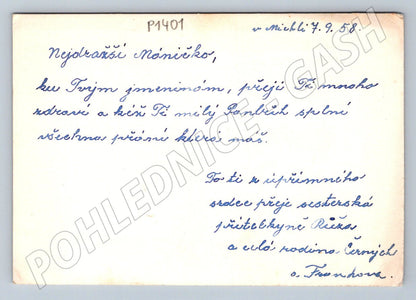 P1401
v Michli 7.9.58.
Nejdražší Máničko,
ku Tvým jmeninám, přeji Ti mnoho
zdraví a kéž Ti milý Pánbůh splní
všechna přání která máš.
To ti z upřímného
srdce přeje sesterská
přítelkyně Růža
a celá rodina Černých
a Frankova.
POHLEDNICE - CASH